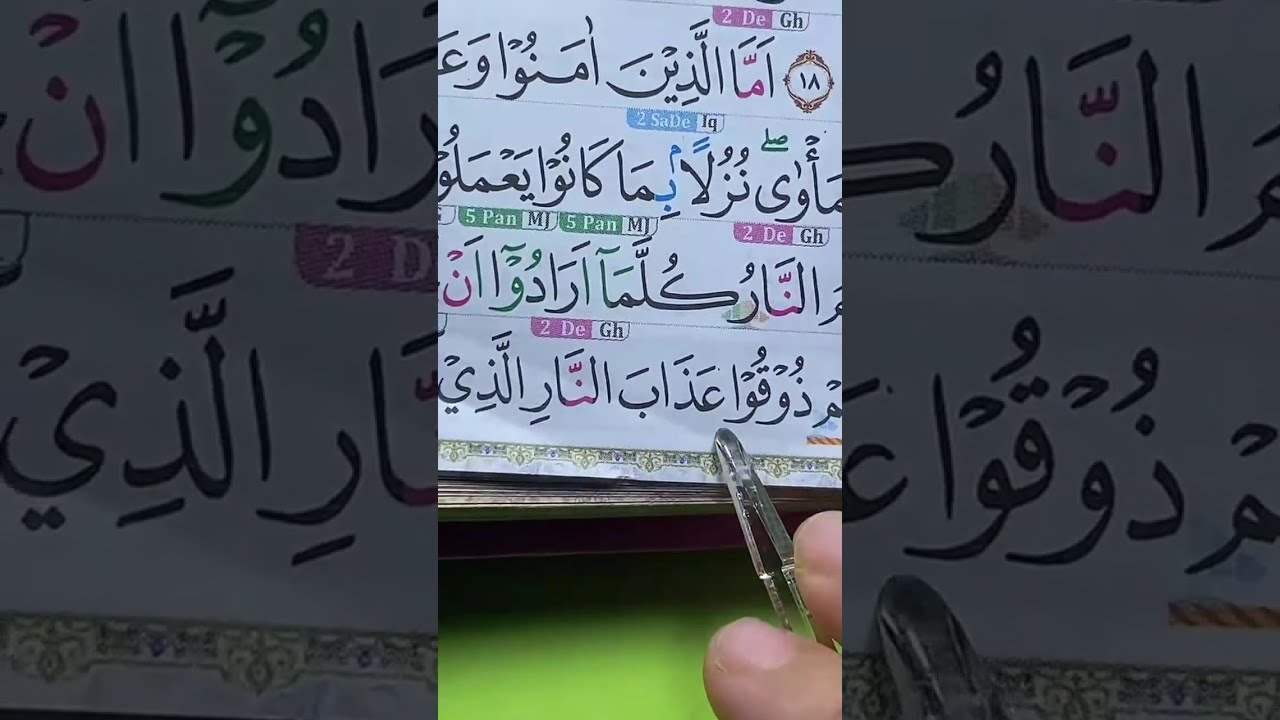 2 De Gh
١٨ اَمَّا الَّذِيْنَ اٰمَنُوْا وَعَ
2 SaDe Iq
مَأْوٰى ۖ نُزُلًا ۢ بِمَا كَانُوْا يَعْمَلُوْ
5 Pan MJ 5 Pan MJ 2 De Gh
مَ النَّارُ كُلَّمَآ اَرَادُوْٓا اَنْ
2 De Gh
مْ ذُوْقُوْا عَذَابَ النَّارِ الَّذِيْ